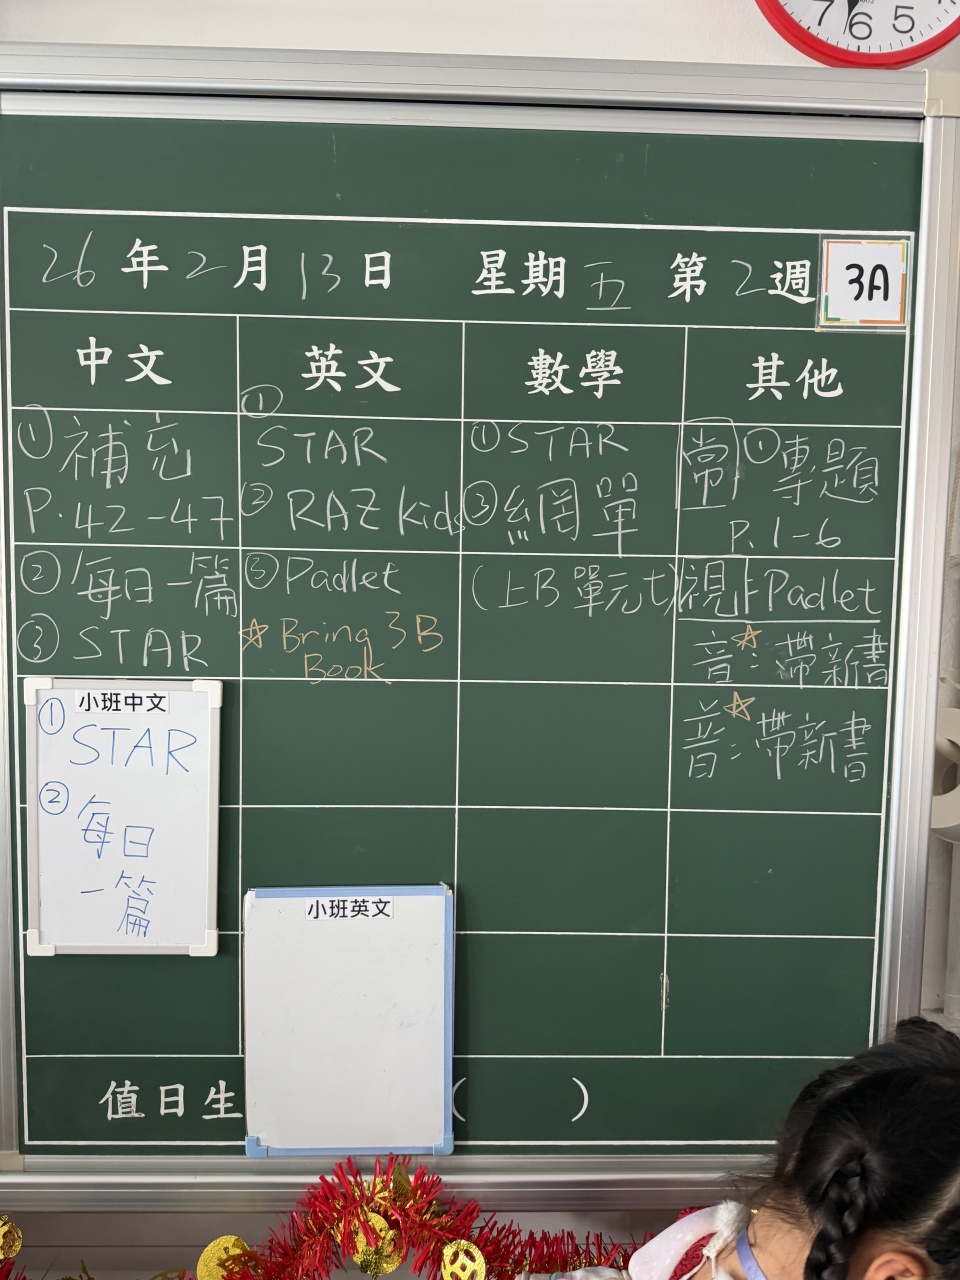 7 6 5
26 年 2 月 13 日 星期 五 第 2 週 3A
中文 英文 數學 其他
① 補充
P. 42 - 47
② 每日一篇
③ STAR
①
STAR
② RAZ kids
③ Padlet
☆ Bring 3B
Book
① STAR
② 網單
(上B單元七)
常 ① 專題
P. 1 - 6
視 Padlet
音☆: 帶新書
普☆: 帶新書
小班中文
① STAR
② 每日
一篇
小班英文
值日生 ( )